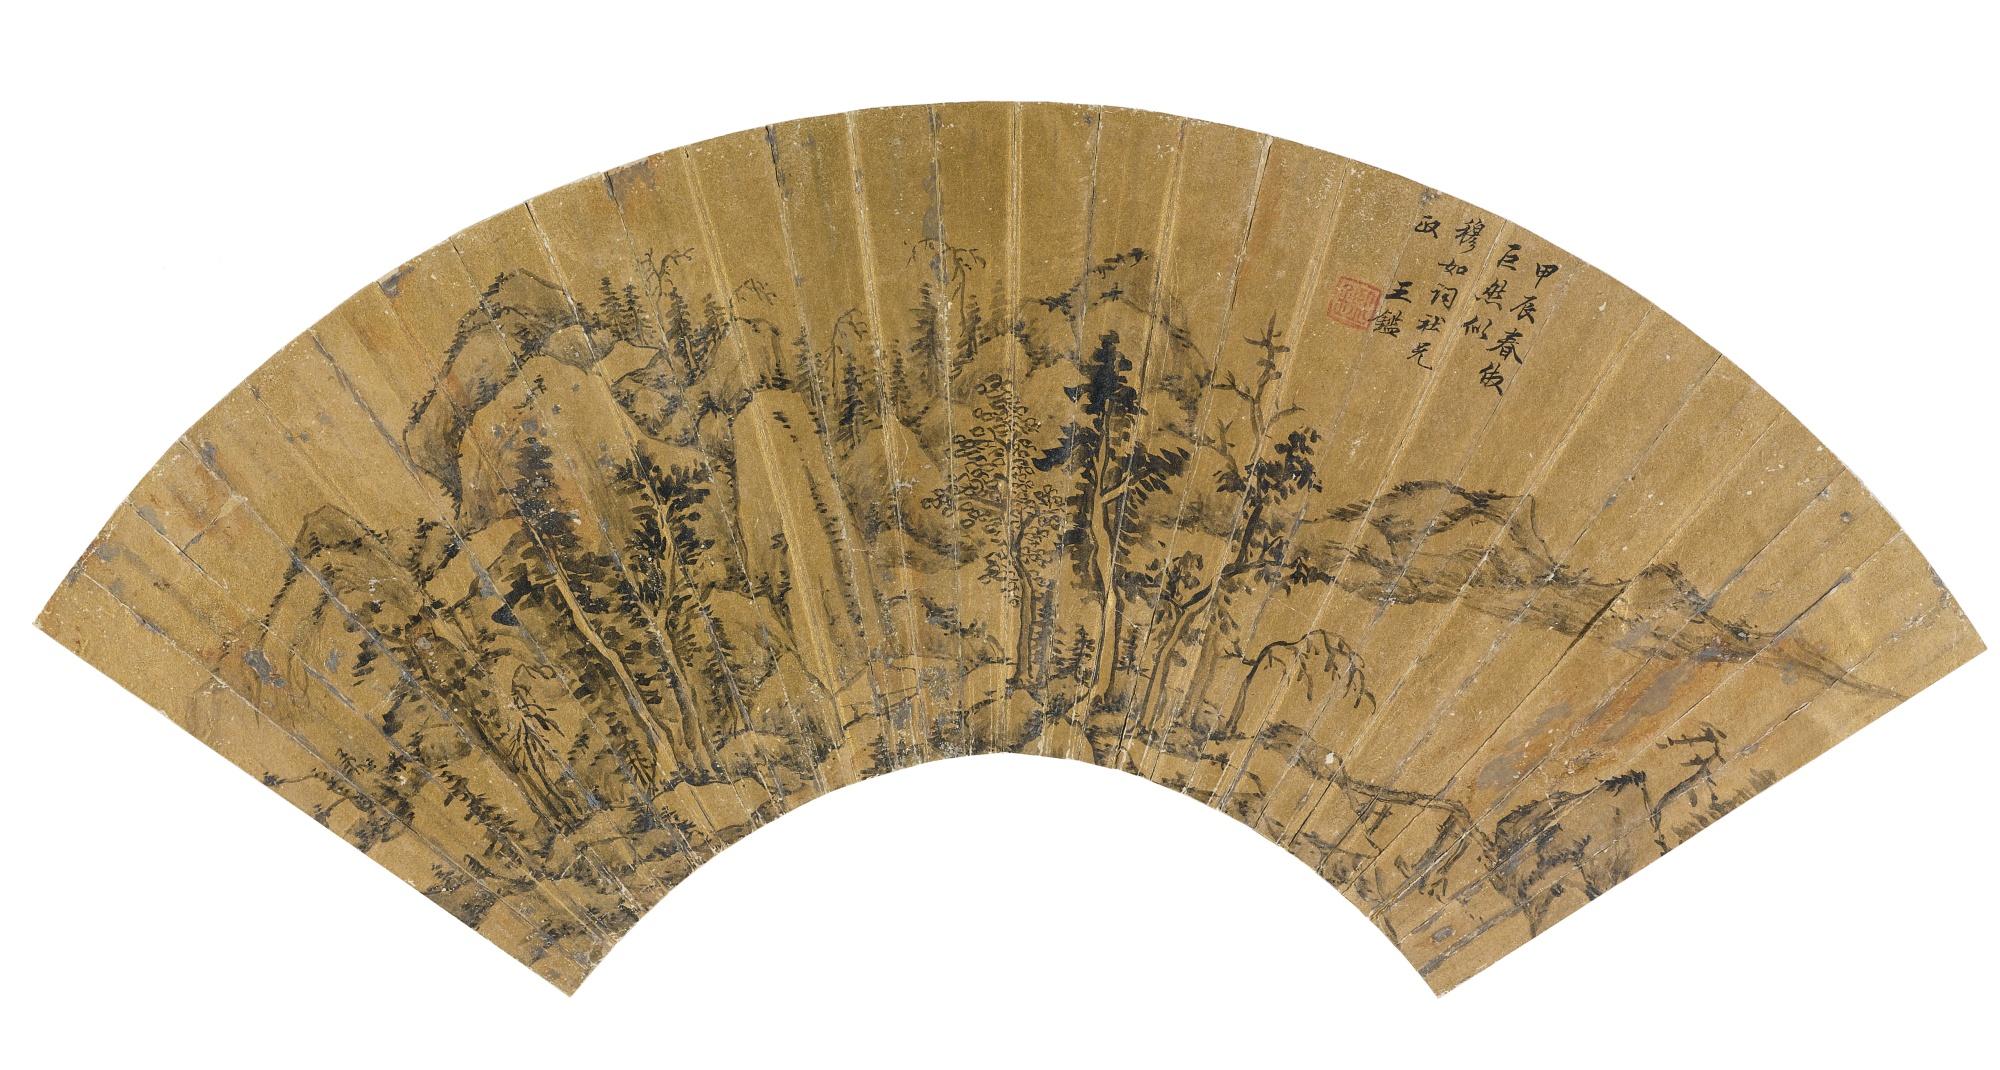 甲辰春倣
巨然似
穆如詞社兄
政
王鑑